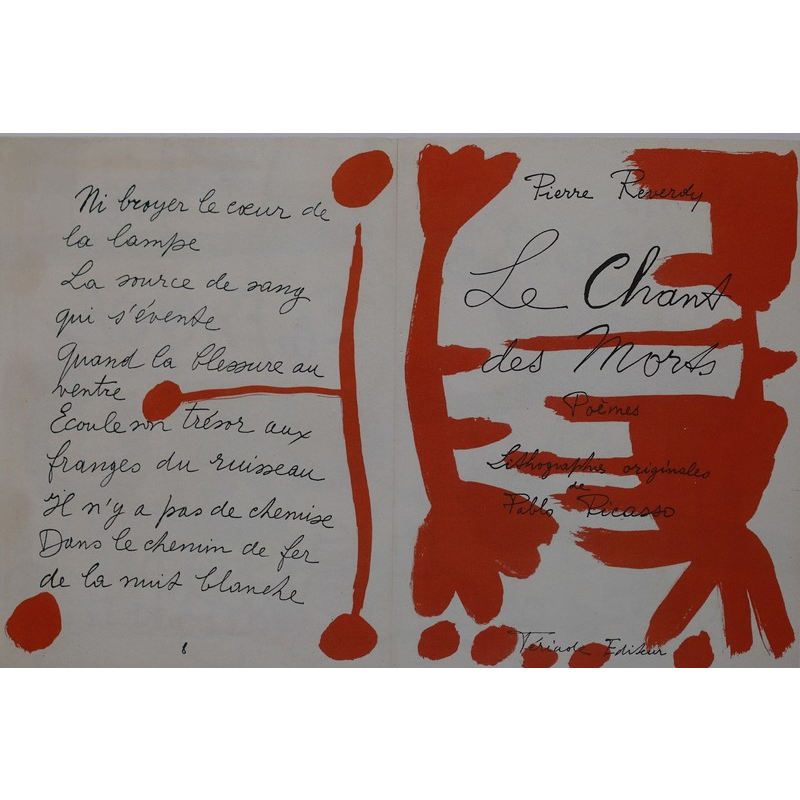 Ni broyer le cœur de
la lampe
La source de sang
qui s'évente
Quand la blessure au
ventre
Écoule son trésor aux
franges du ruisseau
Il n'y a pas de chemise
Dans le chemin de fer
de la nuit blanche
8
Pierre Reverdy
Le Chant
des Morts
Poèmes
Lithographies originales
de
Pablo Picasso
Tériade Editeur